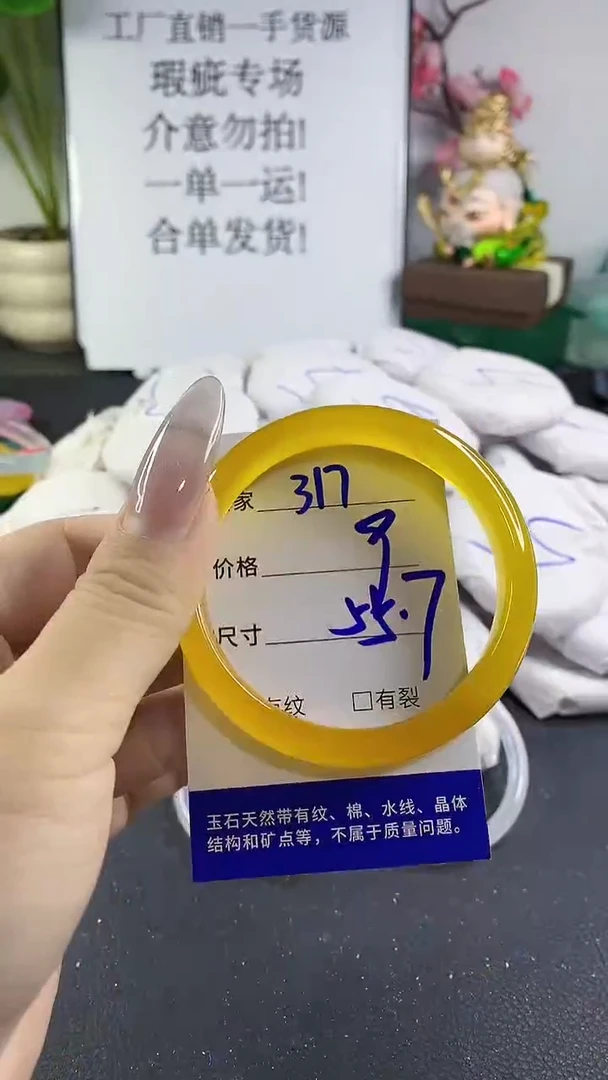 工厂直销一手货源
瑕疵专场
介意勿拍!
一单一运!
合单发货!
家 317
价格
尺寸 55.7
有纹 □有裂
玉石天然带有纹、棉、水线、晶体
结构和矿点等，不属于质量问题。